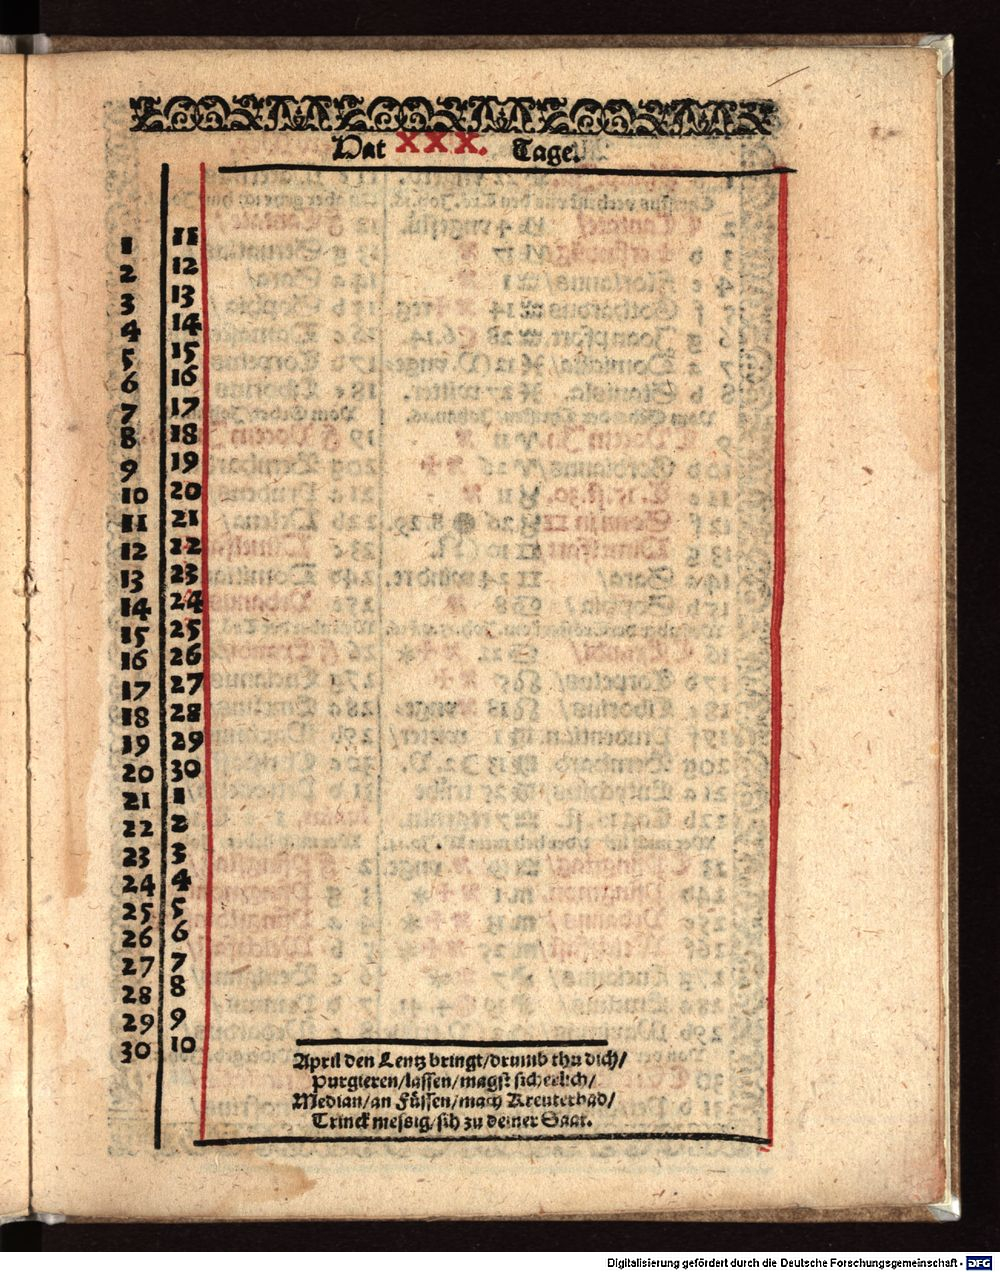 Hat XXX. Tage.
1 11
2 12
3 13
4 14
5 15
6 16
7 17
8 18
9 19
10 20
11 21
12 22
13 23
14 24
15 25
16 26
17 27
18 28
19 29
20 30
21 1
22 2
23 3
24 4
25 5
26 6
27 7
28 8
29 9
30 10
April den Lentz bringt/drumb thu dich/
Purgieren/lassen/magst sicherlich/
Median/an Füssen/mach Kreuterbad/
Trinck messig/sih zu deiner Saat.
Digitalisierung gefördert durch die Deutsche Forschungsgemeinschaft - DFG